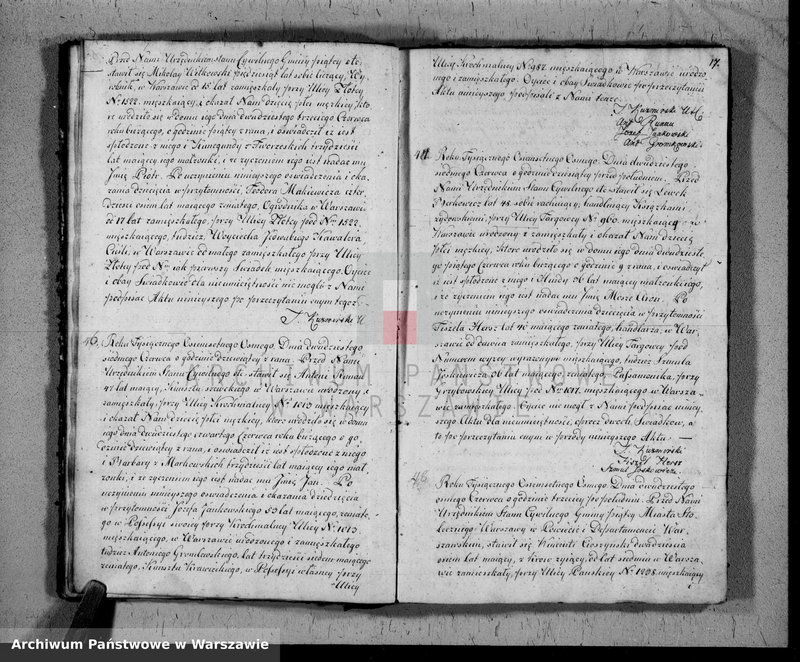 Przed Nami Urzędnikiem stanu Cywilnego Gminy piątej sta-
wił się Mikołay Witkowski pięćdziesiąt lat sobie liczący, Wy-
robnik, w Warszawie od 15 lat zamięszkały przy Ulicy Złotey
N° 1522. mięszkaiący, i okazał Nam dziecię płci męzkiey, któ-
re urodziło się w domu iego dnia dwudziestego trzeciego Czerwca
roku bieżącego, o godzinie piątey z rana, i oświadczył iż iest
spłodzone z niego i Kunegundy z Tworzeskich trzydzieści
lat maiącey iego małżonki, i że życzeniem iego iest nadać mu
Jmię Piotr. Po uczynieniu ninieyszego oświadczenia i oka-
zania dziecięcia w przytomności, Teodora Makiewicza czter-
dzieści osiem lat maiącego żonatego, Ogrodnika w Warszawie
od 17 lat zamięszkałego, przy Ulicy Złotey pod Nrm 1522.
mięszkaiącego, tudzież Woyciecha
Cieśli, w Warszawie od małego zamięszkałego przy Ulicy
Złotey pod Nrm iak pierwszy Świadek mięszkaiącego. Oyciec
i obay Świadkowie dla nieumieiętności nie mogli z Nami
podpisać Aktu ninieyszego po przeczytaniu onym tegoż.
46. Roku Tysiącznego Osiemsetnego Osmego. Dnia dwudziestego
siódmego Czerwca o godzinie dziewiątey z rana. Przed Nami
Urzędnikiem Stanu Cywilnego &c. stawił się Antoni Runau
47 lat maiący, Kunsztu Szewckiego w Warszawie urodzony i
zamięszkały, przy Ulicy Krochmalney N° 1013 mięszkaiący
i okazał Nam dziecię płci męzkiey, które urodziło się w domu
iego dnia dwudziestego czwartego Czerwca roku bieżącego o go-
dzinie dziewiątey z rana, i oświadczył iż iest spłodzone z niego
i Barbary z Markowskich trzydzieści lat maiącey iego mał-
żonki, i że życzeniem iego iest nadać mu Jmię Jan. Po
uczynieniu ninieyszego oświadczenia i okazania dziecięcia
w przytomności Józefa Jankowskiego 53 lat maiącego, żonate-
go w Possessyi swoiey przy Krochmalney Ulicy N° 1013.
mięszkaiącego, w Warszawie urodzonego i zamięszkałego
tudzież Antoniego Gromkowskiego, lat trzydzieści siedem maiącego
żonatego, Kunsztu Krawieckiego, w Possessyi własney przy
Ulicy
17.
Ulicy Krochmalney N° 987. mięszkaiącego w Warszawie urodzo-
nego i zamięszkałego. Oyciec i obay Świadkowie po przeczytaniu
Aktu ninieyszego, podpisali z Nami tenże.
Ant Runau
Jozef Jankowski
Ant Gromkowski.
Roku Tysiącznego Osiemsetnego Osmego. Dnia dwudziestego
siódmego Czerwca o godzinie dziesiątey przed południem. Przed
Nami Urzędnikiem Stanu Cywilnego &c stawił się Lewek
Berkowicz lat 48 sobie rachuiący, handluiący Książkami
żydowskiemi, przy Ulicy Targowey N° 960. mięszkaiący w
Warszawie urodzony i zamięszkały i okazał Nam dziecię
płci męzkiey, które urodziło się w domu iego dnia dwudzieste-
go piątego Czerwca roku bieżącego o godzinie 9 z rana, i oświadczył
iż iest spłodzone z niego i Hindy 36 lat maiącey małżonki iego,
i że życzeniem iego iest nadać mu Jmię Mosze Aron. Po
uczynieniu ninieyszego oświadczenia dziecięcia w przytomności
Fiszela Hersz lat 40 maiącego żonatego, handlarza, w War-
szawie od dawna zamięszkałego, przy Ulicy Targowey pod
Numerem wyżey wyrażonym mięszkaiącego, tudzież Szmula
Joskiewicza 36 lat maiącego żonatego, Passamonika, przy
Grzybowskiey Ulicy pod N° 1017. mięszkaiącego w Warsza-
wie zamięszkałego. Oyciec nie mógł z Nami podpisać niniey-
szego Aktu dla nieumieiętności, oprócz dwóch Świadków, a
to po przeczytaniu onym w przódy ninieyszego Aktu. —
Fiszel Hersz
Szmul Joskowicz.
Roku Tysiącznego Osiemsetnego Osmego. Dnia dwudziestego
osmego Czerwca o godzinie trzeciey po południu. Przed Nami
Urzędnikiem Stanu Cywilnego Gminy piątey Miasta Sto-
łecznego Warszawy w Powiecie i Departamencie War-
szawskim, stawił się Wincenty Goszyński dwadzieścia
osiem lat maiący, od lat siedmiu w Warsza-
wie zamieszkały, przy Ulicy Pańskiey N° 1298. mięszkaiący
ARCHIWUM PAŃSTWOWE
W WARSZAWIE
Archiwum Państwowe w Warszawie